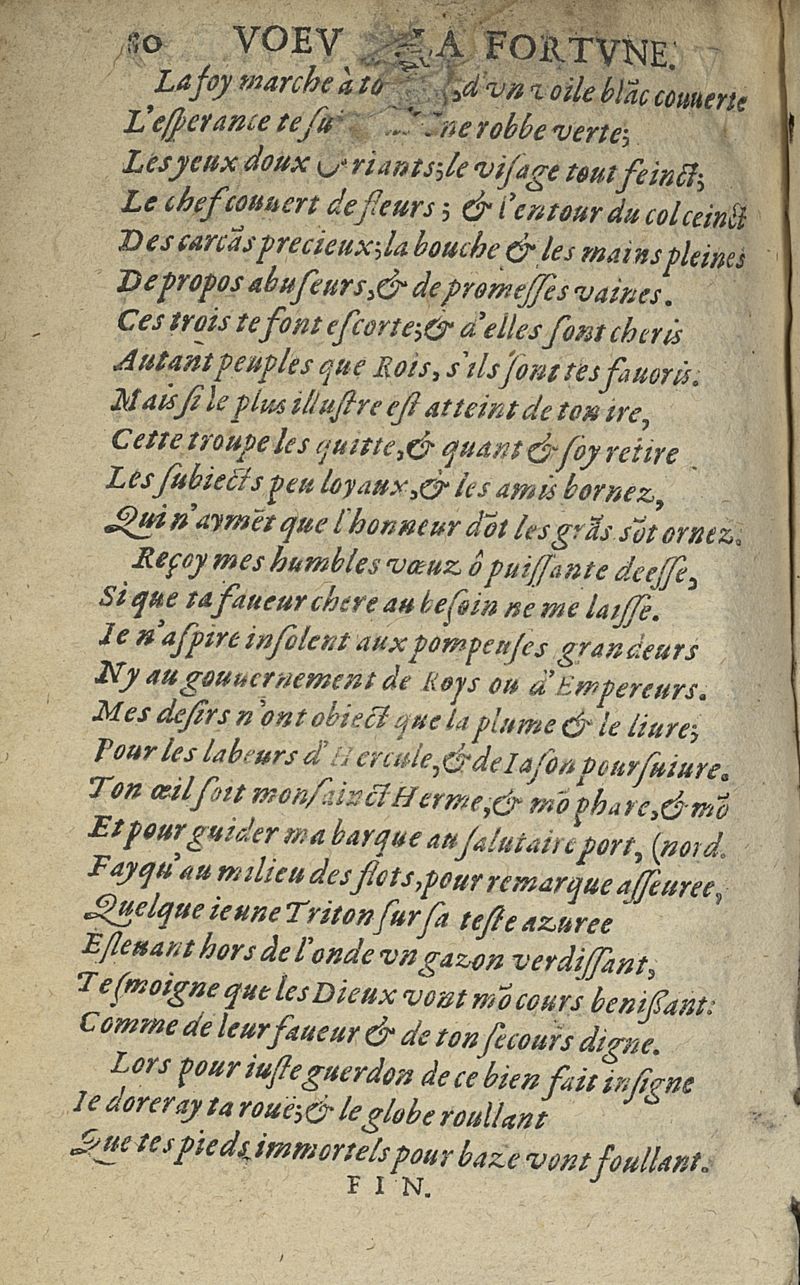 80 VOEV A FORTVNE.
La foy marche à to ,d'vn voile blāc couuerte
L'esperance te su ne robbe verte;
Les yeux doux & riants; le visage tout feinct;
Le chef couuert de fleurs; & l'entour du col ceinct
Des carcās precieux; la bouche & les mains pleines
De propos abuseurs, & de promesses vaines.
Ces trois te font escorte; & d'elles sont cheris
Autant peuples que Rois, s'ils sont tes fauoris.
Mais si le plus illustre est atteint de ton ire,
Cette troupe les quitte, & quant & soy retire
Les subiects peu loyaux, & les amis bornez,
Qui n'aymēt que l'honneur dōt les grās sōt ornez.
Reçoy mes humbles vœuz ô puissante deesse,
Si que ta faueur chere au besoin ne me laisse.
Ie n'aspire insolent aux pompeuses grandeurs
Ny au gouuernement de Roys ou d'Empereurs.
Mes desirs n'ont obiect que la plume & le liure;
Pour les labeurs d'Hercule, & de Iason poursuiure.
Ton œil soit mon sainct Herme, & mō phare, & mō
Et pour guider ma barque au salutaire port, (nord.
Fay qu'au milieu des flots, pour remarque asseuree,
Quelque ieune Triton sur sa teste azuree
Esleuant hors de l'onde vn gazon verdissant,
Tesmoigne que les Dieux vont mō cours benißant:
Comme de leur faueur & de ton secours digne.
Lors pour iuste guerdon de ce bien fait insigne
Ie doreray ta rouë; & le globe roullant
Que tes pieds immortels pour baze vont foullant.
FIN.